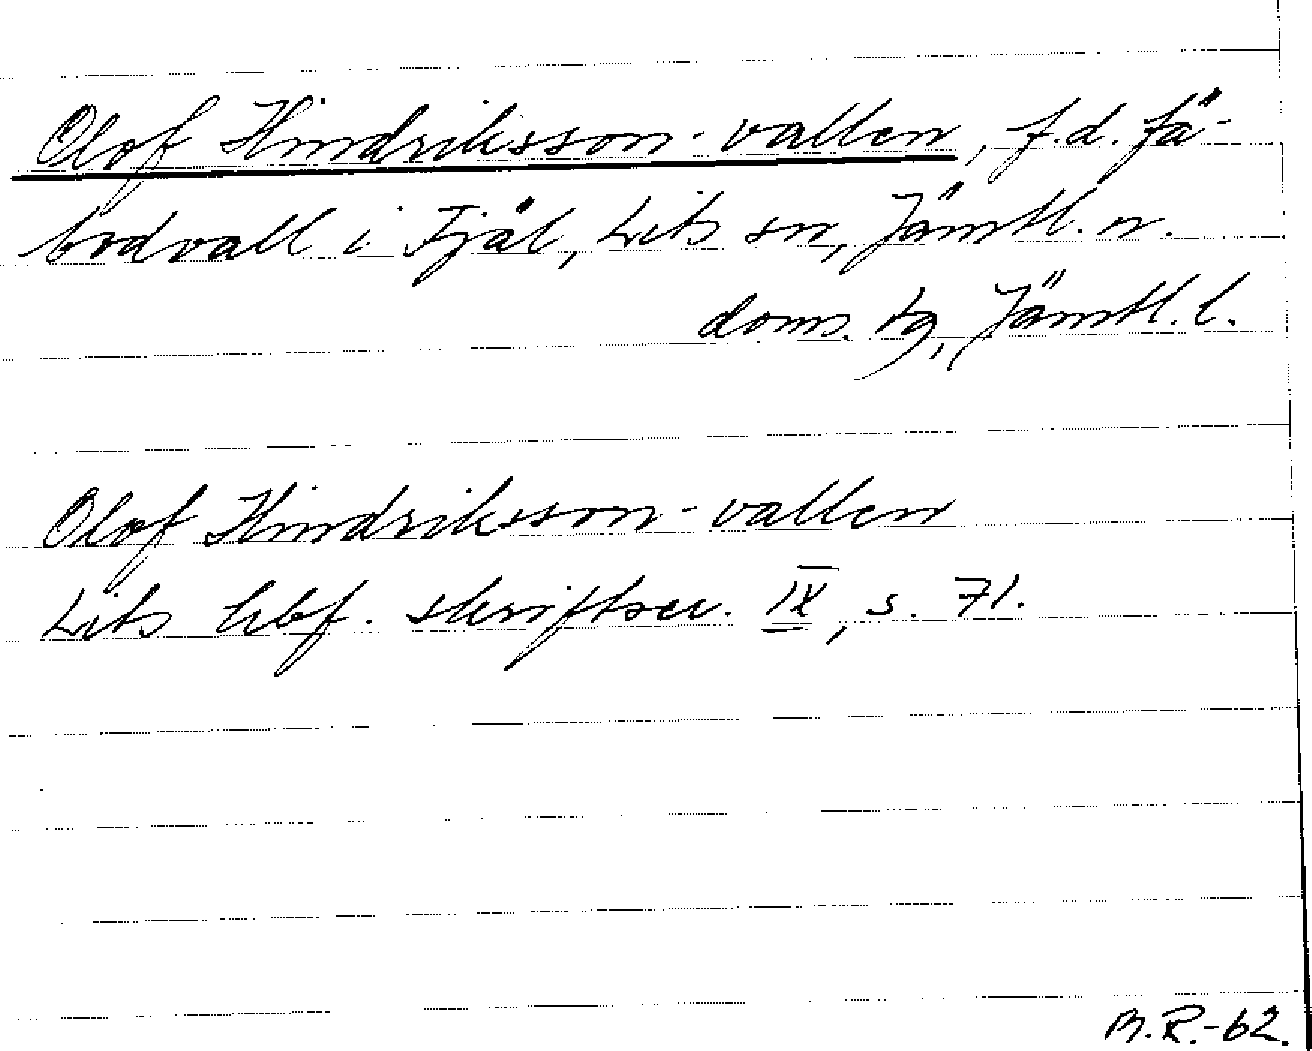 Olof Hindriksson-vallen, f.d. fä-
bodvall i Fjäl, Lits sn, Jämtl. n.
doms. tg, Jämtl. l.
Olof Hindriksson-vallen
Lits hbf. skriftser. IX, s. 71.
B.R.-62.